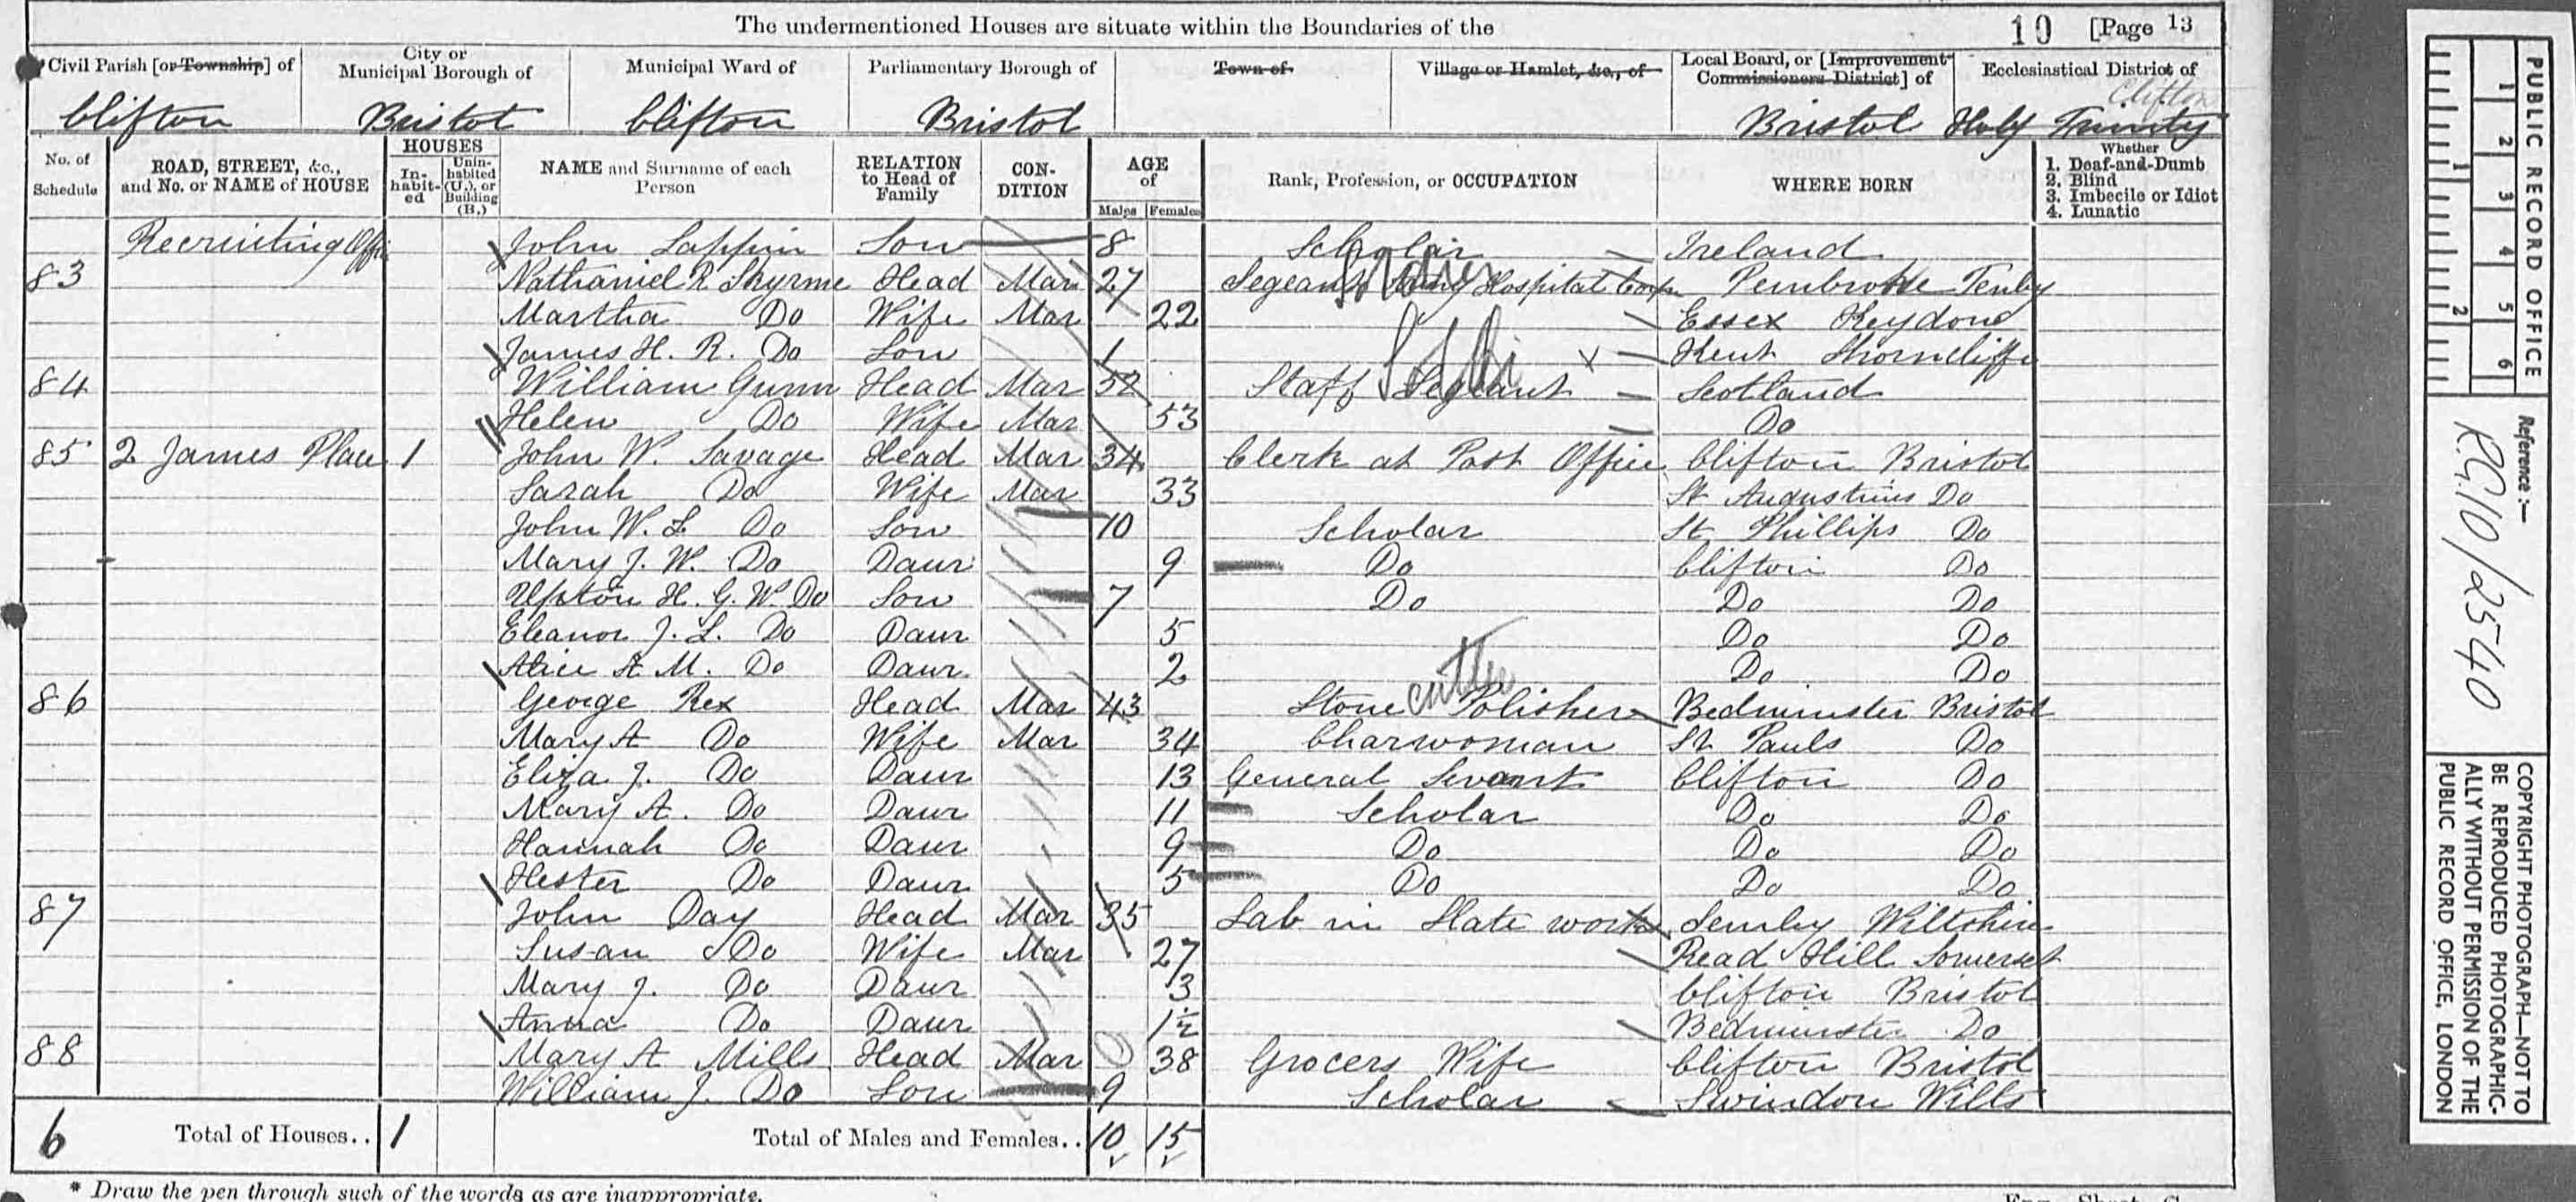 The undermentioned Houses are situate within the Boundaries of the 10 [Page 13
Civil Parish [or Township] of City or Municipal Borough of Municipal Ward of Parliamentary Borough of Town of Village or Hamlet, &c., of Local Board, or [Improvement Commissioners District] of Ecclesiastical District of
Clifton
Clifton Bristol Clifton Bristol Bristol Holy Trinity
No. of Schedule ROAD, STREET, &c., and No. or NAME of HOUSE HOUSES In-habit-ed Unin-habited (U.), or Building (B.) NAME and Surname of each Person RELATION to Head of Family CON-DITION AGE of Males Females Rank, Profession, or OCCUPATION WHERE BORN Whether 1. Deaf-and-Dumb 2. Blind 3. Imbecile or Idiot 4. Lunatic
Recruiting Offi John Lappin Son 8 Scholar Ireland
83 Nathaniel R Skyrme Head Mar 27 Segeant Army Hospital Corps Pembroke Tenby
Martha Do Wife Mar 22 Essex Heydone
James H. R. Do Son 1 Kent Shorncliffe
84 William Gunn Head Mar 52 Staff Segeant Scotland
Helen Do Wife Mar 53 Do
85 2 James Place 1 John W. Savage Head Mar 34 Clerk at Post Office Clifton Bristol
Sarah Do Wife Mar 33 St Augustines Do
John W. L. Do Son 10 Scholar St Phillips Do
Mary J. W. Do Daur 9 Do Clifton Do
Upton H. G. W Do Son 7 Do Do Do
Eleanor J. L. Do Daur 5 Do Do
Alice A. M. Do Daur 2 Do Do
86 George Rex Head Mar 43 Stone cutter Polisher Bedminster Bristol
Mary A Do Wife Mar 34 Charwoman St Pauls Do
Eliza J. Do Daur 13 General Servant Clifton Do
Mary A. Do Daur 11 Scholar Do Do
Hannah Do Daur 9 Do Do Do
Hester Do Daur 5 Do Do Do
87 John Day Head Mar 35 Lab in Slate works Semley Wiltshire
Susan Do Wife Mar 27 Read Hill Somerset
Mary J. Do Daur 3 Clifton Bristol
Anna Do Daur 1½ Bedminster Do
88 Mary A Mills Head Mar 38 Grocers Wife Clifton Bristol
William J. Do Son 9 Scholar Swindon Wills
6 Total of Houses.. 1 Total of Males and Females.. 10 15
* Draw the pen through such of the words as are inappropriate.
PUBLIC RECORD OFFICE
1 2 3 4 5 6
1 2
Reference :—
R.G. 10 / 2540
COPYRIGHT PHOTOGRAPH—NOT TO BE REPRODUCED PHOTOGRAPHIC-
ALLY WITHOUT PERMISSION OF THE PUBLIC RECORD OFFICE, LONDON